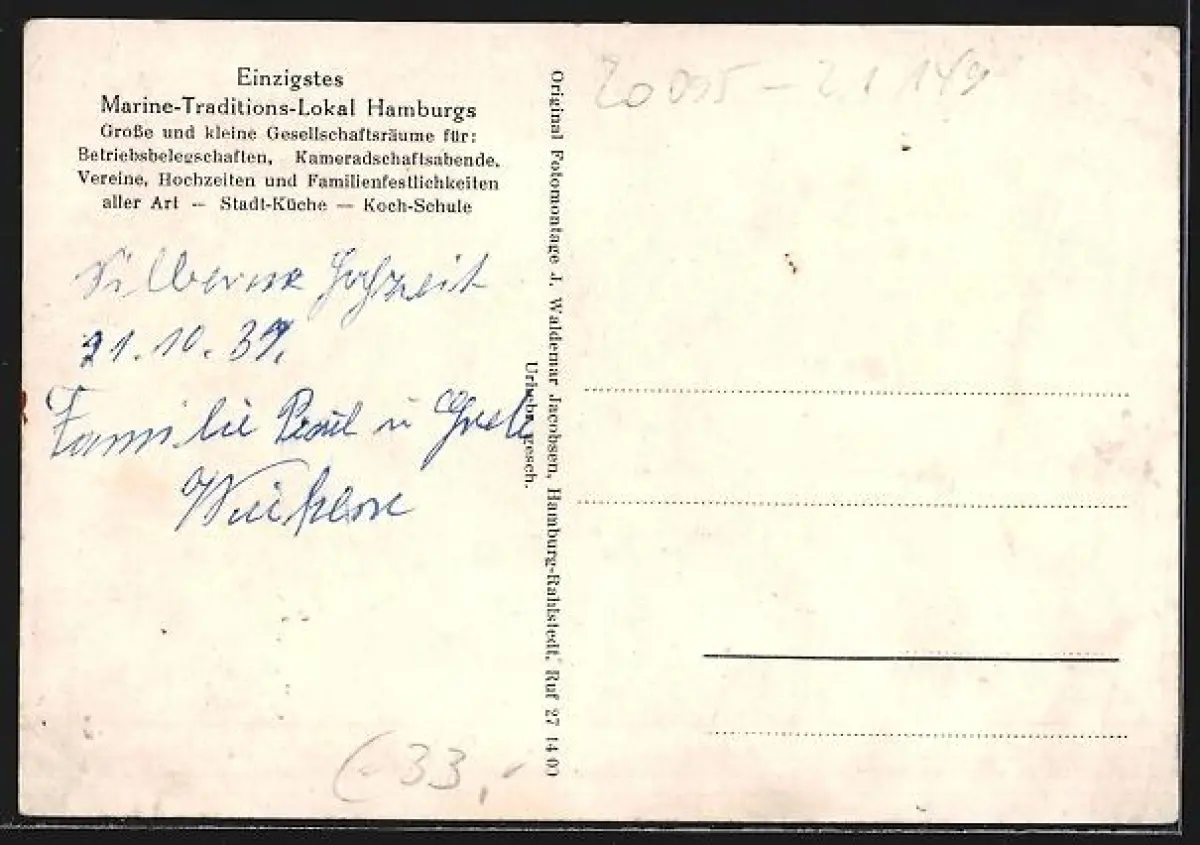 Einzigstes
Marine-Traditions-Lokal Hamburgs
Große und kleine Gesellschaftsräume für:
Betriebsbelegschaften, Kameradschaftsabende,
Vereine, Hochzeiten und Familienfestlichkeiten
aller Art – Stadt-Küche — Koch-Schule
Silberne Hochzeit
21.10.39.
Familie Paul u Grete
Original Fotomontage J. Waldemar Jacobsen, Hamburg-Rahlstedt, Ruf 27 14 00
Urhebr. gesch.
20095 – 21 149
33,-